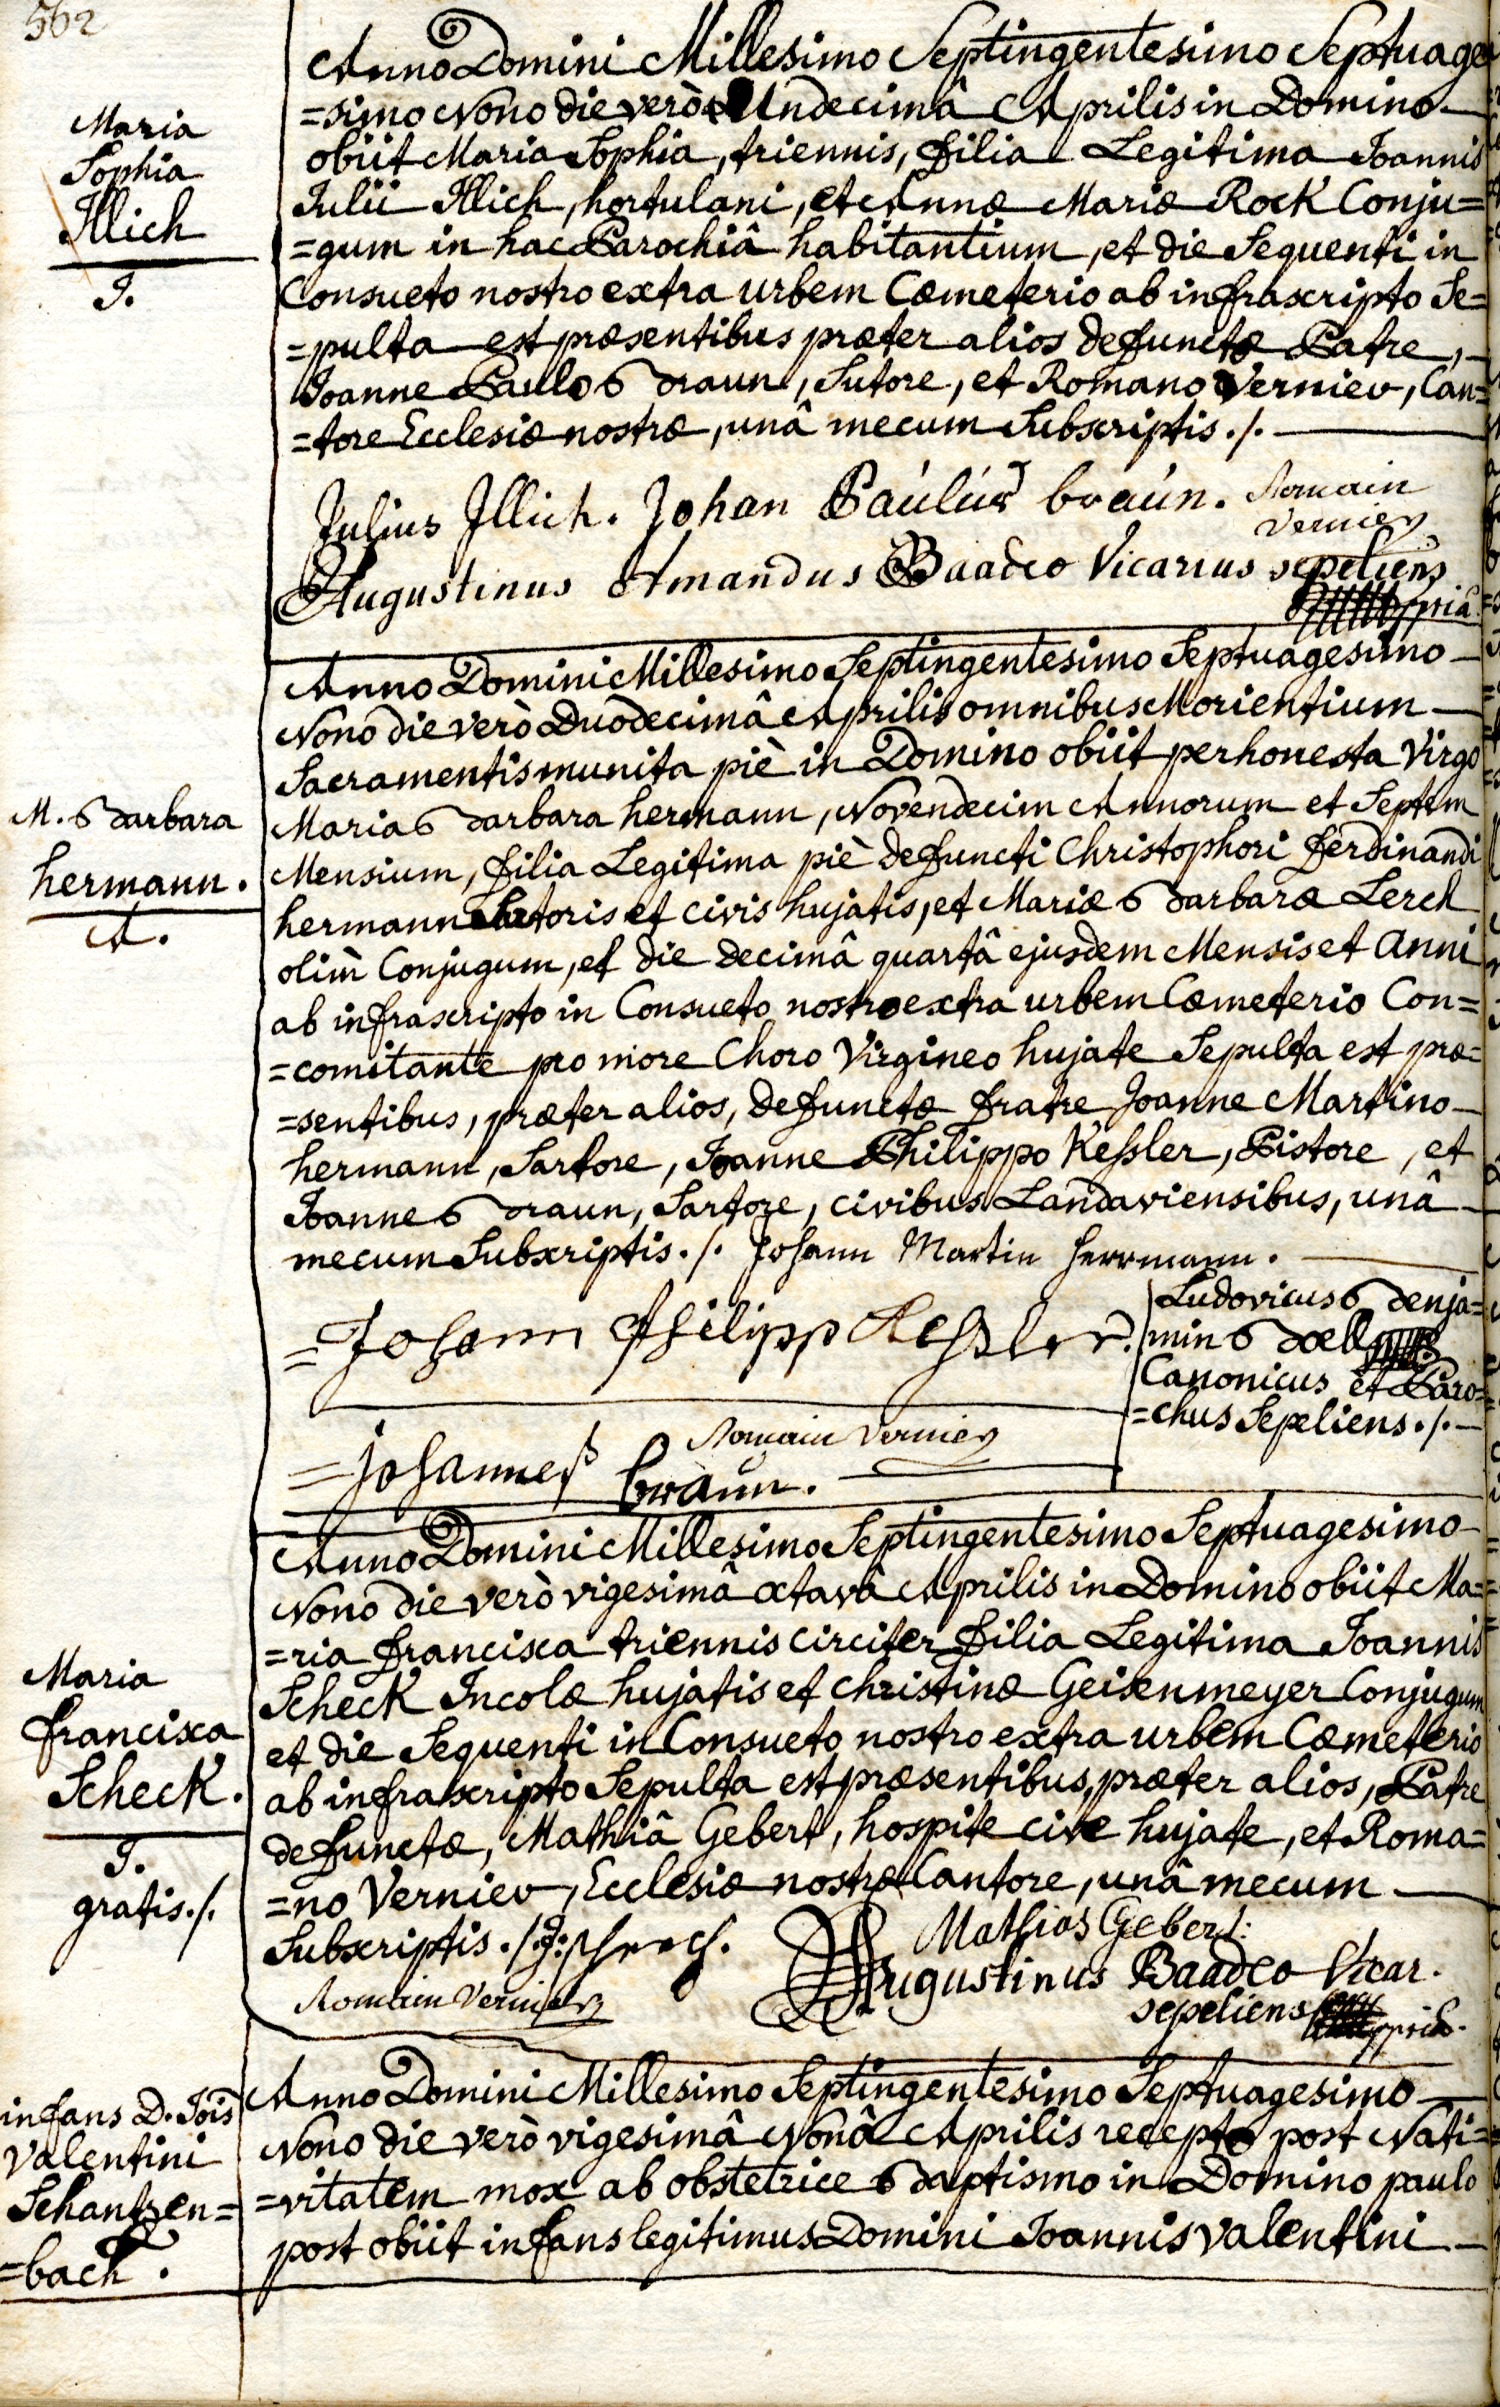 562
Maria
Sophia
Illich
I.
Anno Domini Millesimo Septingentesimo Septuage
=simo Nono die verò Undecimâ Aprilis in Domino
obiit Maria Sophia, triennis, filia Legitima Joannis
Julii Illich, hortulani, et Annæ Mariæ Rock Conju=
=gum in hac Parochiâ habitantium, et die Sequenti in
Consueto nostro extra urbem Cœmeterio ab infrascripto Se=
=pulta est præsentibus præter alios defunctæ Patre,
Joanne Paulo Braun, Sutore, et Romano Vernier, Can=
=tore Ecclesiæ nostræ, unâ mecum Subscriptis ./.
Julius Illich. Johan Paúlús braún. Romain
Vernier
Augustinus Amandus Baadeo Vicarius sepeliens
ppriâ
M. Barbara
hermann.
A.
Anno Domini Millesimo Septingentesimo Septuagesimo
Nono die verò Duodecimâ Aprilis omnibus Morientium
Sacramentis munita piè in Domino obiit perhonesta Virgo
Maria Barbara hermann, Novendecim Annorum et Septem
Mensium, filia Legitima piè defuncti Christophori ferdinandi
hermann Sartoris et civis hujatis, et Mariæ Barbaræ Lerch
olim Conjugum, et die decimâ quartâ ejusdem Mensis et Anni
ab infrascripto in Consueto nostro extra urbem Cœmeterio Con=
=comitante pro more Choro Virgineo hujate Sepulta est præ=
=sentibus, præter alios, defunctæ fratre Joanne Martino
hermann, Sartore, Joanne Philippo Kessler, Pistore, et
Joanne Braun, Sartore, civibus Landaviensibus, unâ
mecum Subscriptis ./. Johann Martin Herrmann.
=Johann Philipp Kessler.
Ludovicus Benja=
min Boell
Canonicus et Paro=
=chus Sepeliens ./.
Romain Vernier
=Johannes braun.
Maria
francisca
Scheck.
I.
gratis ./.
Anno Domini Millesimo Septingentesimo Septuagesimo
Nono die verò vigesimâ octavâ Aprilis in Domino obiit Ma=
=ria francisca triennis circiter filia Legitima Joannis
Scheck Incolæ hujatis et Christinæ Geisenmeyer Conjugum
et die Sequenti in Consueto nostro extra urbem Cœmeterio
ab infrascripto Sepulta est præsentibus, præter alios, Patre
defunctæ, Mathiâ Gebert, hospite cive hujate, et Roma=
=no Vernier, Ecclesiæ nostræ Cantore, unâ mecum
Subscriptis ./.
Mathias Gebert:
Romain Vernier
Augustinus Baadeo Vicar.
sepeliens ppriâ.
infans D. Jois
Valentini
Schantzen=
=bach.
Anno Domini Millesimo Septingentesimo Septuagesimo
Nono die verò vigesimâ Nonâ Aprilis recepto post Nati=
=vitatem mox ab obstetrice Baptismo in Domino paulo
post obiit infans legitimus Domini Joannis Valentini